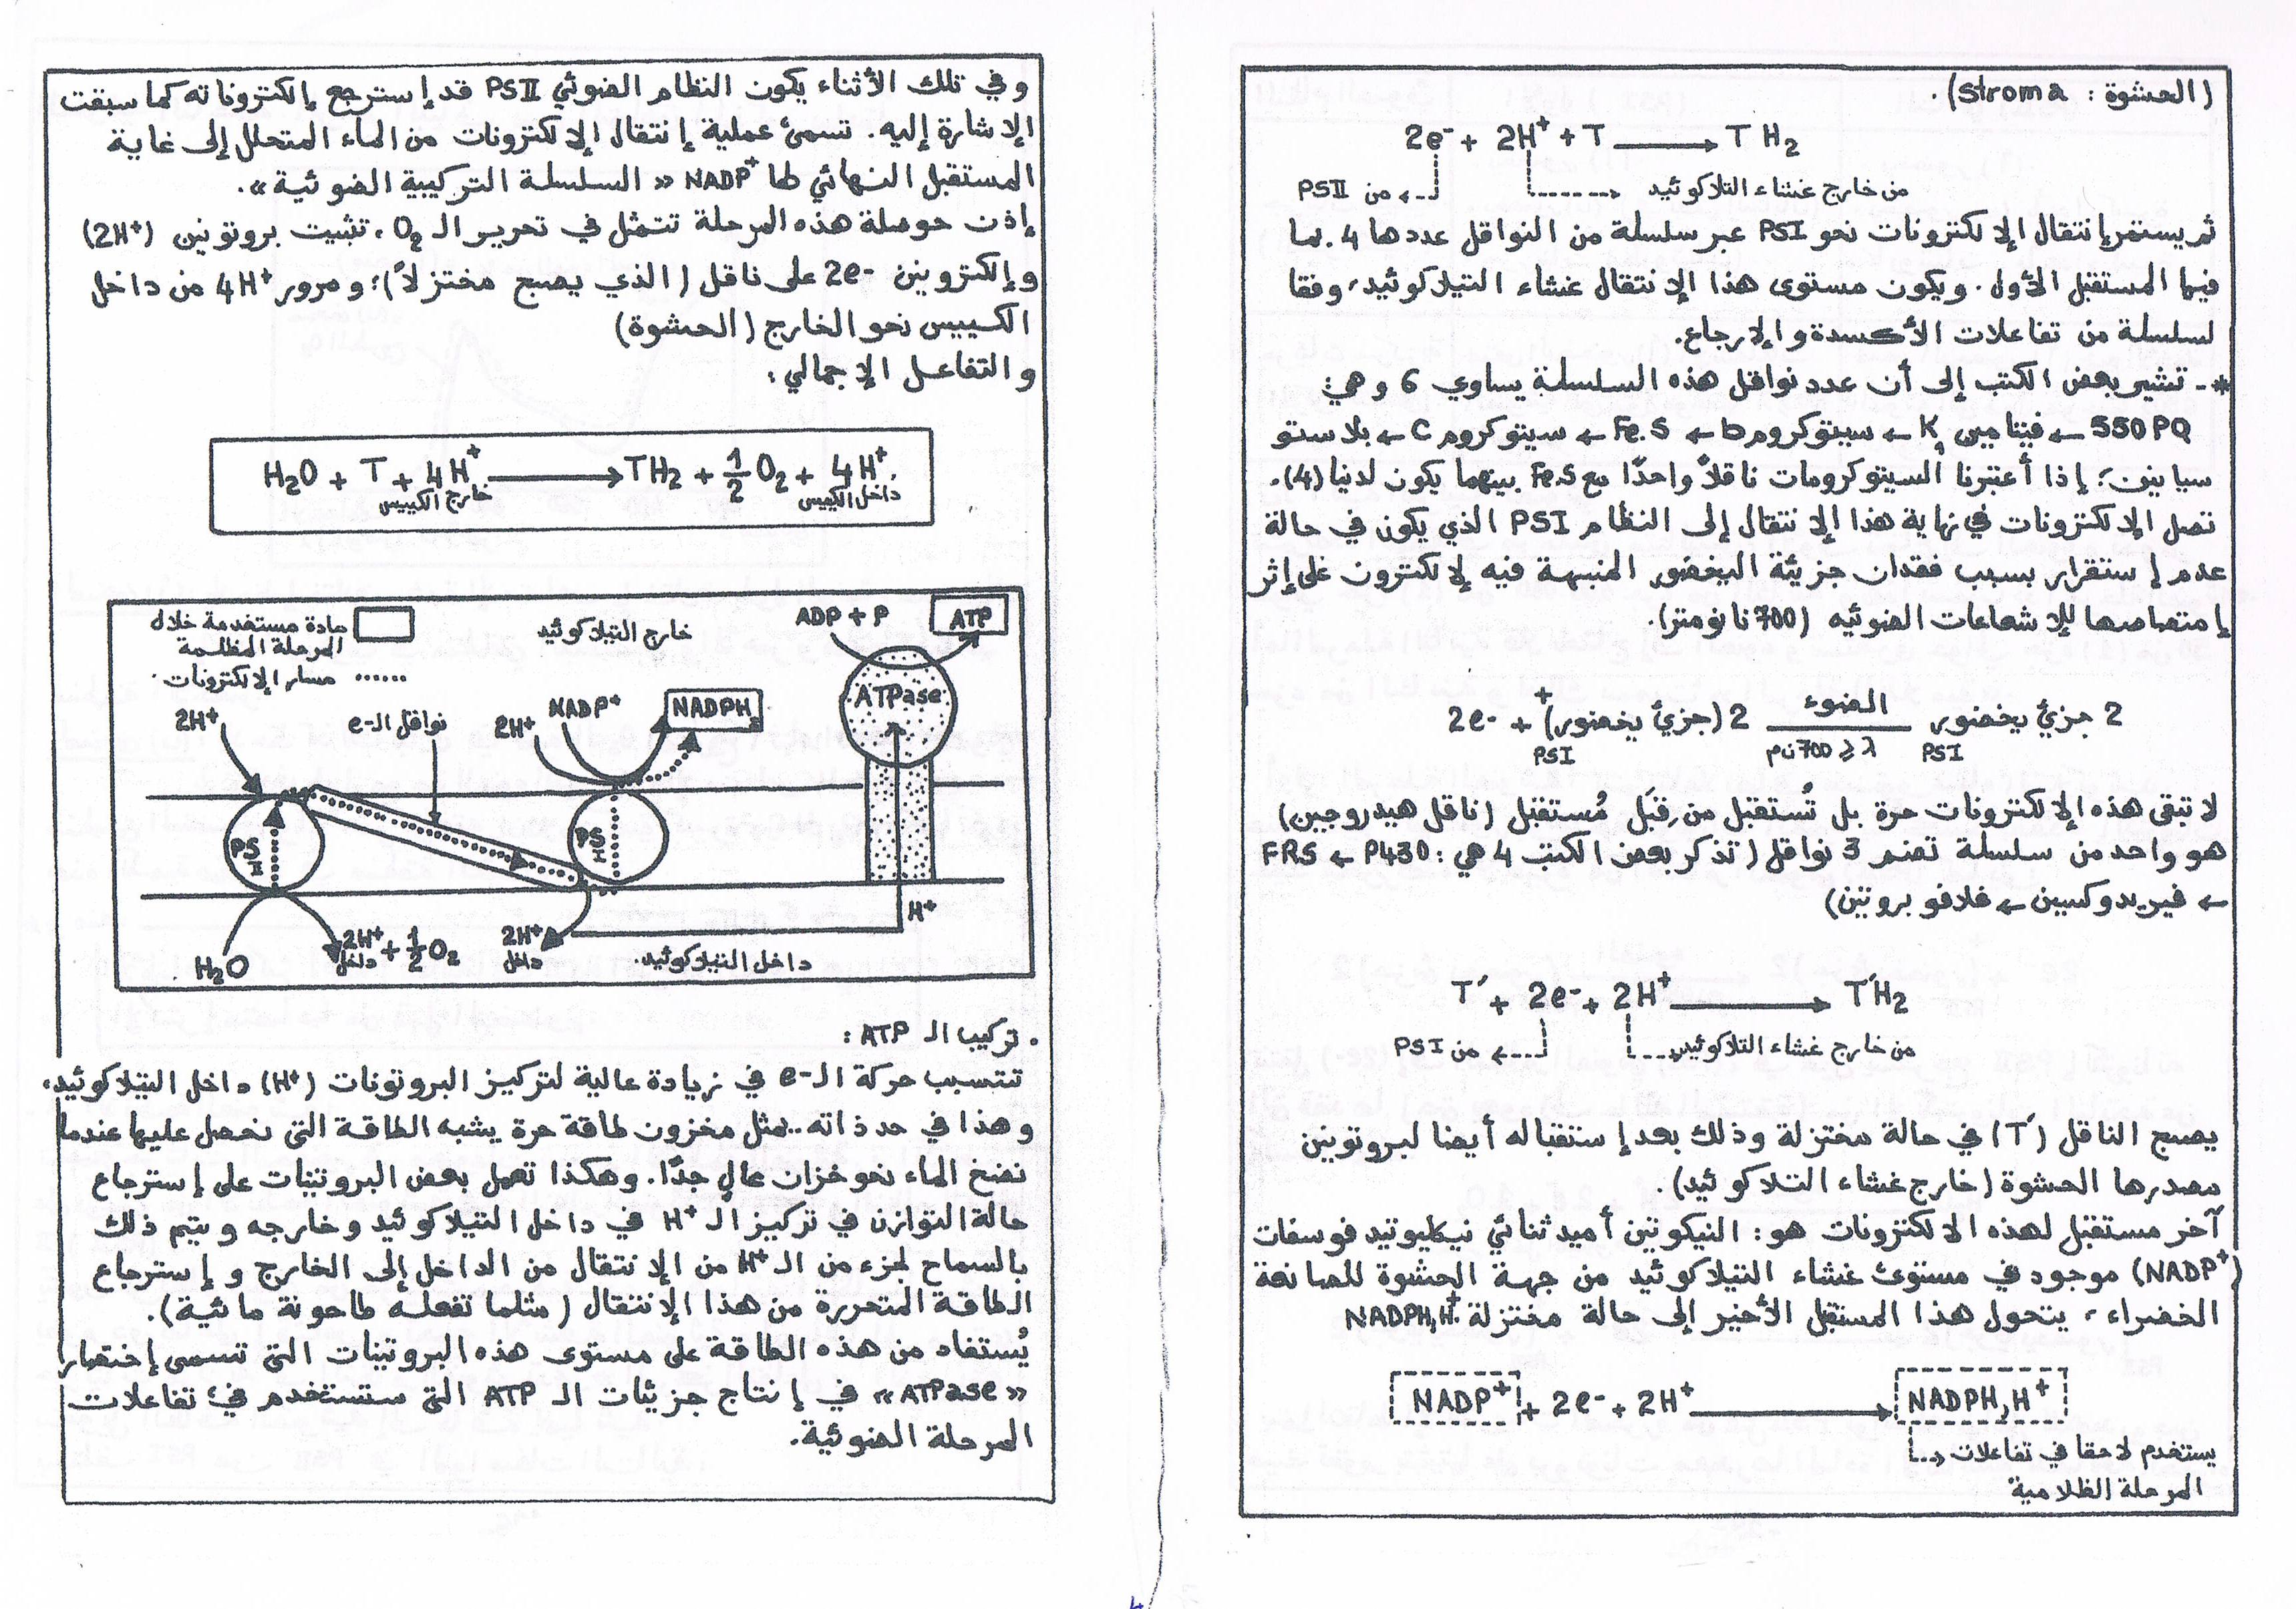 (الحشوة : Stroma).
2e- + 2H+ + T → T H2
من PSII
من خارج غشاء التلاكوئيد
ثم يستمر إنتقال الإلكترونات نحو PSI عبر سلسلة من النواقل عددها 4. بما
فيها المستقبل الأول. ويكون مستوى هذا الإنتقال غشاء التيلاكوئيد، وفقا
لسلسلة من تفاعلات الأكسدة و الإرجاع.
*- تشير بعض الكتب إلى أن عدد نواقل هذه السلسلة يساوي 6 و هي:
550 PQ ← فيتامين K1 ← سيتوكروم b ← Fe.S ← سيتوكروم C ← بلاستو
سيانين؛ إذا أعتبرنا السيتوكرومات ناقلاً واحدًا مع Fe.S بينهما يكون لدنيا (4).
تصل الإلكترونات في نهاية هذا الإنتقال إلى النظام PSI الذي يكون في حالة
عدم إستقرار بسبب فقدان جزيئة اليخضور المنبهة فيه لإلكترون على إثر
إمتصاصها للإشعاعات الضوئيه (700 نانومتر).
2 جزيئ يخضور PSI الضوء λ ≤ 700 نم 2 (جزيئ يخضور PSI)+ + 2e-
لا تبقى هذه الإلكترونات حرة بل تُستقبل من قِبَل مُستقبل (ناقل هيدروجين)
هو واحد من سلسلة تضم 3 نواقل (تذكر بعض الكتب 4 هي: FRS ← P430
← فيريدوكسين ← فلافو بروتين)
T' + 2e- + 2H+ → T'H2
من PSI
من خارج غشاء التلاكوئيد
يصبح الناقل (T') في حالة مختزلة وذلك بعد إستقباله أيضا لبروتونين
مصدرها الحشوة (خارج غشاء التلاكوئيد).
آخر مستقبل لهذه الإلكترونات هو: النيكوتين أميد ثنائي نيكليوتيد فوسفات
(NADP+) موجود في مستوى غشاء التيلاكوئيد من جهة الحشوة للصانعة
الخضراء، يتحول هذا المستقبل الأخير إلى حالة مختزلة NADPH,H+.
NADP+ + 2e- + 2H+ → NADPH,H+
يستخدم لاحقا في تفاعلات
المرحلة الظلامية
وفي تلك الأثناء يكون النظام الضوئي PSII قد إسترجع إلكتروناته كما سبقت
الإشارة إليه. تسمى عملية إنتقال الإلكترونات من الماء المتحلل إلى غاية
المستقبل النهائي لها NADP+ «السلسلة التركيبية الضوئية».
إذن حوصلة هذه المرحلة تتمثل في تحرير الـ O2، تثبيت بروتونين (2H+)
وإلكترونين 2e- على ناقل (الذي يصبح مختزلاً)؛ و مرور 4H+ من داخل
الكييس نحو الخارج (الحشوة)
و التفاعل الإجمالي:
H2O + T + 4H+ → TH2 + 1/2 O2 + 4H+.
خارج الكييس
داخل الكييس
مادة مستخدمة خلال
المرحلة المظلمة
...... مسار الإلكترونات.
خارج التيلاكوئيد
ADP + P
ATP
ATPase
2H+
نواقل الـ e-
2H+
NADP+
NADPH2
PSII
PSI
H+
H2O
2H+ داخل + 1/2 O2
2H+ داخل
داخل التيلاكوئيد.
. تركيب الـ ATP :
تتسبب حركة الـ e- في زيادة عالية لتركيز البروتونات (H+) داخل التيلاكوئيد،
وهذا في حد ذاته يمثل مخزون طاقة حرة يشبه الطاقة التي نحصل عليها عندما
نضخ الماء نحو خزان عالٍ جدًا. وهكذا تعمل بعض البروتينات على إسترجاع
حالة التوازن في تركيز الـ H+ في داخل التيلاكوئيد وخارجه ويتم ذلك
بالسماح لجزء من الـ H+ من الإنتقال من الداخل إلى الخارج و إسترجاع
الطاقة المتحررة من هذا الإنتقال (مثلما تفعله طاحونة مائية).
يُستفاد من هذه الطاقة على مستوى هذه البروتينات التي تسمى إختصارا
«ATPase» في إنتاج جزيئات الـ ATP التي ستستخدم في تفاعلات
المرحلة الضوئية.
4